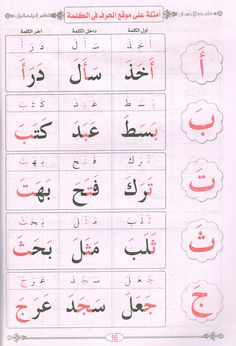 أمثلة على موقع الحرف في الكلمة
أول الكلمة داخل الكلمة آخر الكلمة
أَ خَ ذَ سَ أَ لَ دَ رَ أَ
أَ أَخَذَ سَأَلَ دَرَأَ
بَـ سَـ طَ عَـ بَـ دَ كَـ تَـ بَ
بَ بَسَطَ عَبَدَ كَتَبَ
تَـ رَ كَ فَـ تَـ حَ بَـ هَـ تَ
تَ تَرَكَ فَتَحَ بَهَتَ
ثَـ لَـ بَ مَـ ثَـ لَ بَـ حَـ ثَ
ثَ ثَلَبَ مَثَلَ بَحَثَ
جَـ عَـ لَ سَـ جَـ دَ عَـ رَ جَ
جَ جَعَلَ سَجَدَ عَرَجَ
16